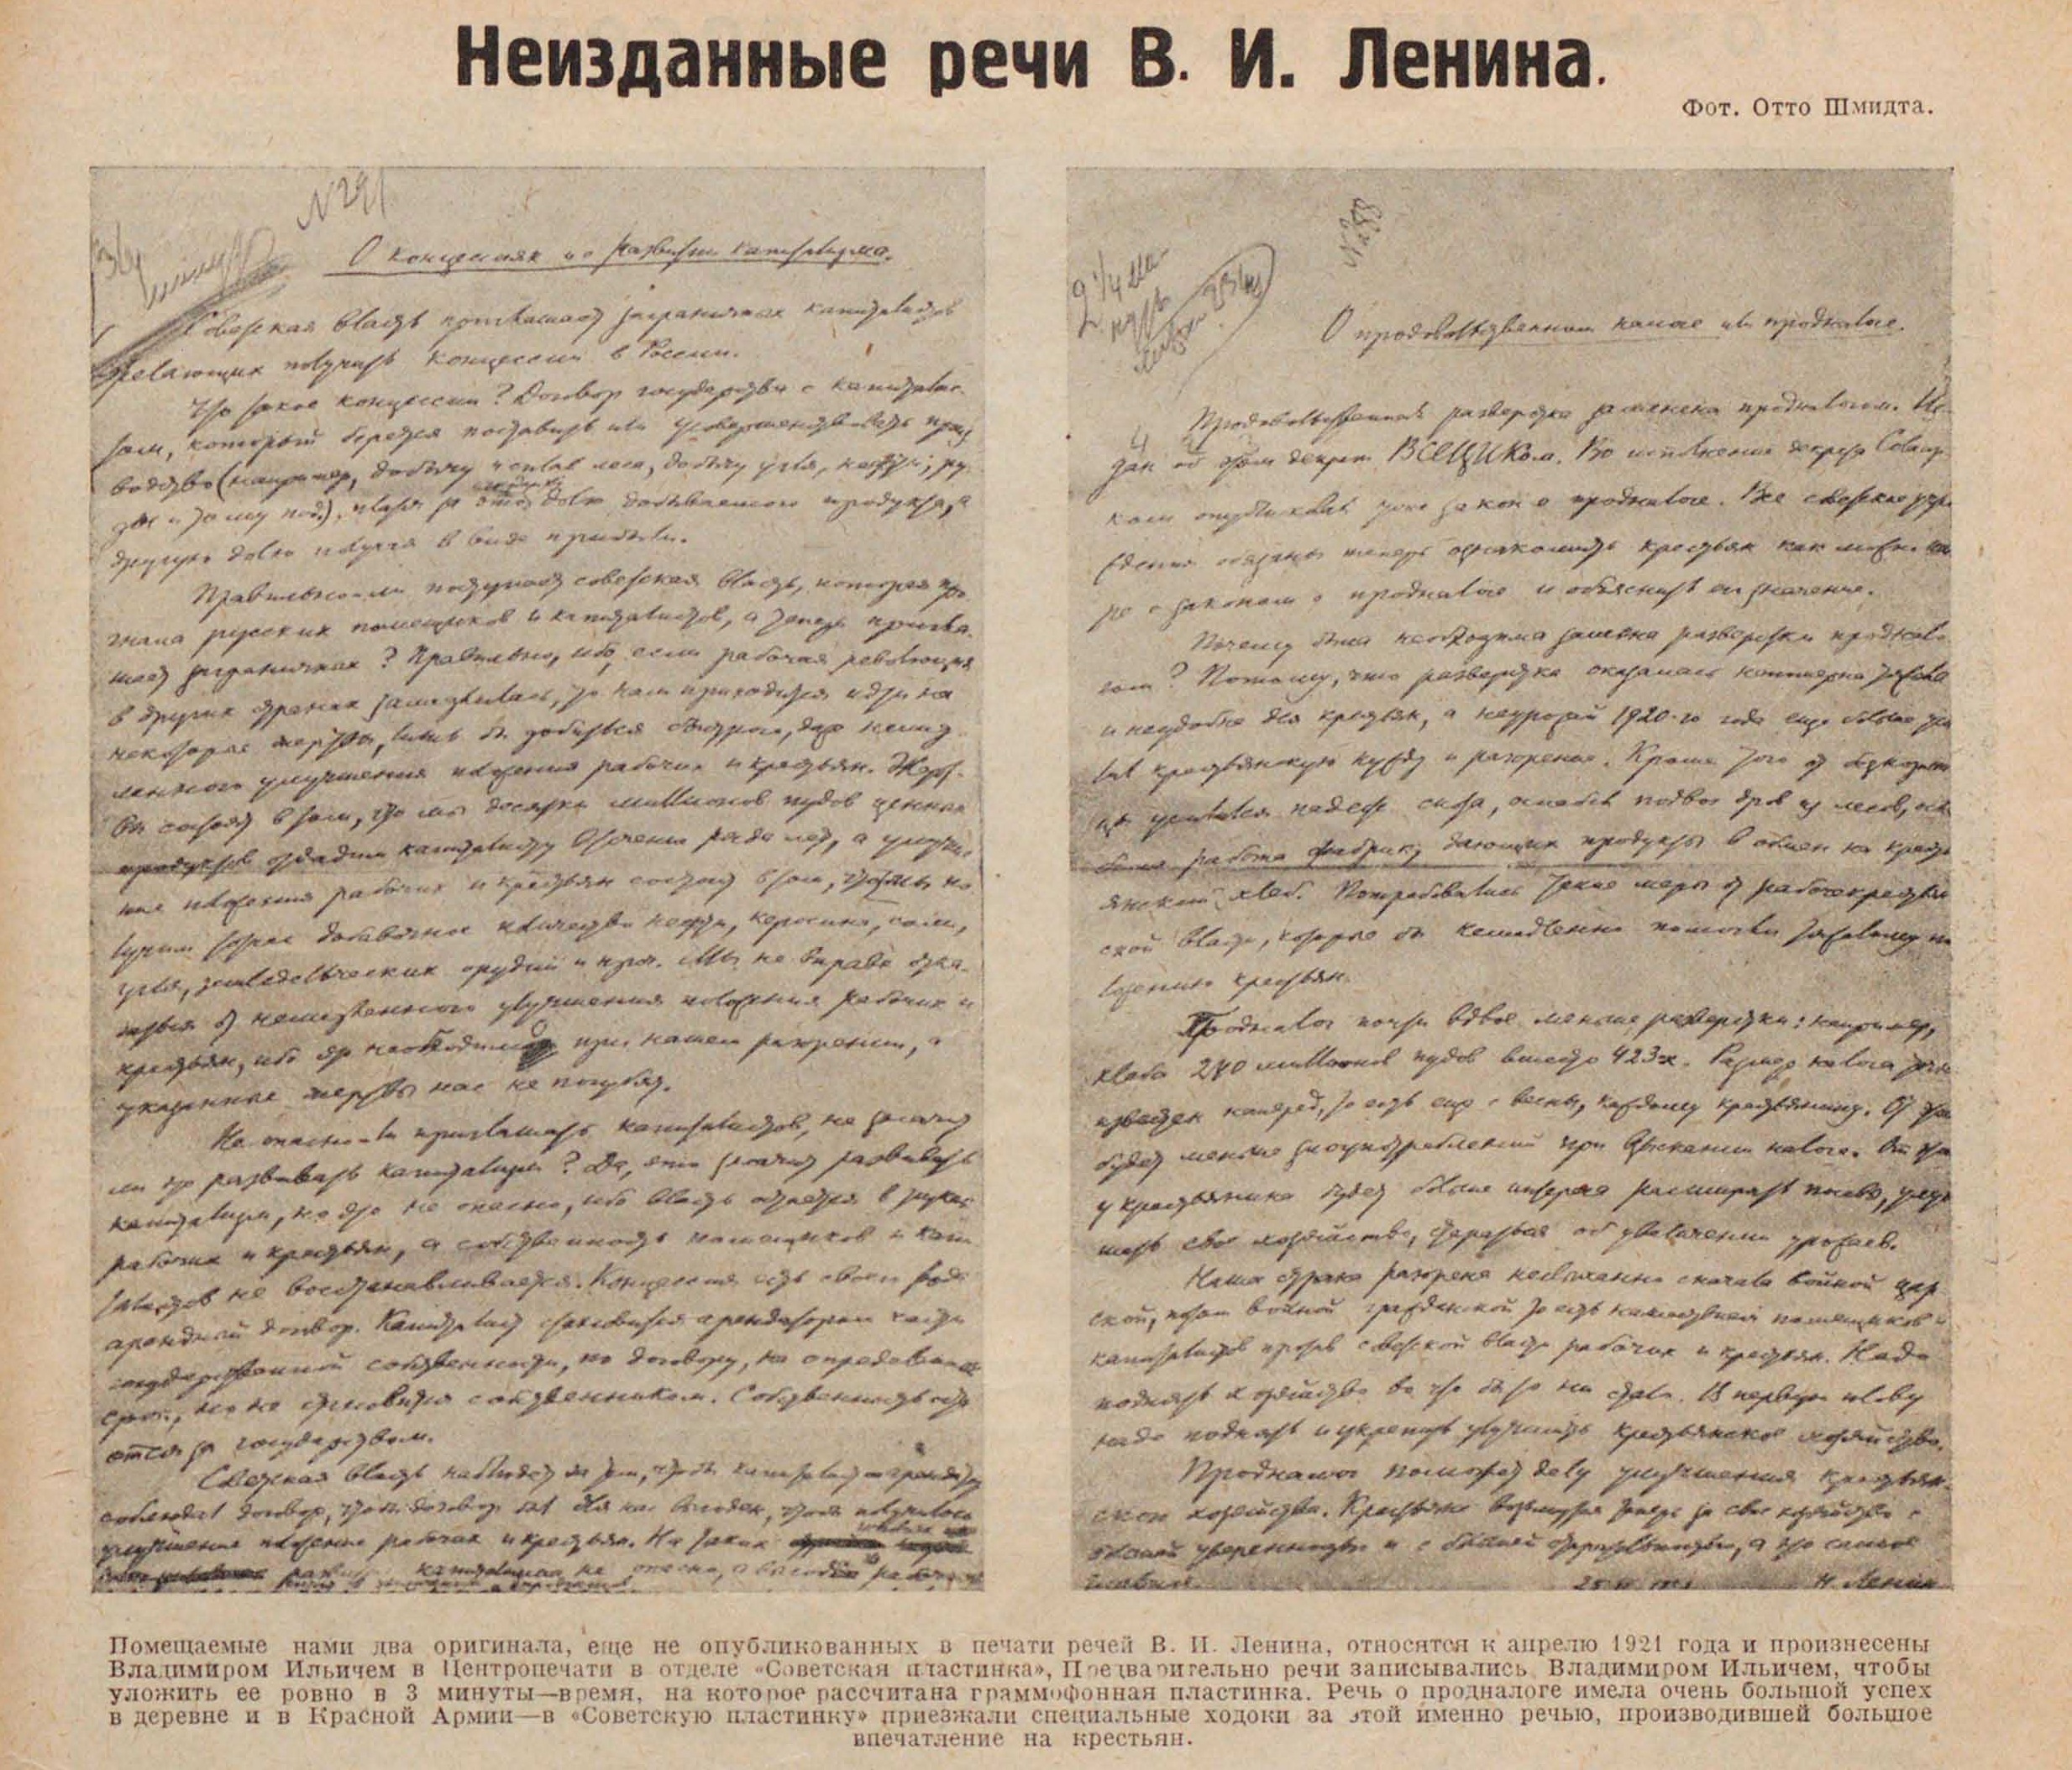 Неизданные речи В. И. Ленина.
Фот. Отто Шмидта.
N 291
О концессиях и о развитии капитализма.
Советская власть приглашает заграничных капиталистов
желающих получить концессии в России.
Что такое концессии? Договор государства с капиталис-
том, который берется поставить или усовершенствовать произ
водство (например, добычу и сплав леса, добычу угля, нефти, ру
ды и тому под.), платя за это долю добываемого продукта, а
другую долю получая в виде прибыли.
Правильно-ли поступает советская власть, которая про
гнала русских помещиков и капиталистов, а теперь пригла-
шает заграничных? Правильно, ибо, если рабочая революция
в других странах замедлилась, то нам приходится идти на
некоторые жертвы, лишь бы добиться быстрого, даже немед
ленного улучшения положения рабочих и крестьян. Жерт-
вы состоят в том, что мы десятки миллионов пудов ценных
продуктов отдадим капиталисту в течении ряда лет, а улучше
ние положения рабочих и крестьян состоит в том, чтобы по
лучим тотчас добавочное количество нефти, керосина, соли,
угля, земледельческих орудий и проч. Мы не вправе отка-
заться от немедленного улучшения положения рабочих и
крестьян, ибо это необходимо при нашем разорении, а
указанные жертвы нас не погубят.
Не опасно-ли приглашать капиталистов, не значит
ли это развивать капитализм? Да, это значит развивать
капитализм, но это не опасно, ибо власть остается в руках
рабочих и крестьян, а собственность помещиков и капи
талистов не восстанавливается. Концессия есть своего рода
арендный договор. Капиталист становится арендатором части
государственной собственности, по договору, на определенный
срок, но не становится собственником. Собственность оста
ется за государством.
Советская власть наблюдет за тем, чтобы капиталист-арендатор
соблюдал договор, чтобы договор был для нас выгоден, чтобы получилось
улучшение положения рабочих и крестьян. На таких условиях
развитие капитализма не опасно, а выгода рабочих
2 1/4 ма-
N 288
О продовольственном налоге или продналоге.
Продовольственная разверстка заменена продналогом. Из-
дан об этом декрет ВСЕЦИКом. Во исполнение декрета Совнар
ком опубликовал уже закон о продналоге. Все советские учре
ждения обязаны теперь ознакомить крестьян как можно ши
ре с законом о продналоге и объяснить его значение.
Почему была необходима замена разверстки продна-
логом? Потому, что разверстка оказалась непомерно тяжела
и неудобна для крестьян, а неурожай 1920-го года еще больше уси
лил крестьянскую нужду и разорение. Кроме того от бескорми
цы усилился падеж скота, ослабел подвоз дров из лесов, осла
бела работа фабрик, дающих продукты в обмен на кресть
янский хлеб. Потребовались такие меры от рабоче-крестьян
ской власти, которые бы немедленно помогли тяжелому по
ложению крестьян.
Продналог почти вдвое меньше разверстки: например,
хлеба 240 миллионов пудов вместо 423-х. Размер налога точно
известен наперед, то есть еще с весны, каждому крестьянину. От этого
будет меньше злоупотреблений при взыскании налога. От этого
у крестьянина будет больше интереса расширять посев, улуч
шать свое хозяйство, стараться об увеличении урожаев.
Наша страна разорена неслыханно сначала войной цар
ской, потом войной гражданской то есть нашествием помещиков и
капиталистов против советской власти рабочих и крестьян. Надо
поднять хозяйство во что бы то ни стало. И в первую голову
надо поднять и укрепить улучшить крестьянское хозяйство.
Продналог поможет делу улучшения крестьян-
ского хозяйства. Крестьяне возьмутся теперь за свое хозяйство с
большей уверенностью и с большей старательностью, а это самое
главное.
Н. Ленин
Помещаемые нами два оригинала, еще не опубликованных в печати речей В. И. Ленина, относятся к апрелю 1921 года и произнесены
Владимиром Ильичем в Центропечати в отделе «Советская пластинка», Предварительно речи записывались Владимиром Ильичем, чтобы
уложить ее ровно в 3 минуты—время, на которое рассчитана граммофонная пластинка. Речь о продналоге имела очень большой успех
в деревне и в Красной Армии—в «Советскую пластинку» приезжали специальные ходоки за этой именно речью, производившей большое
впечатление на крестьян.